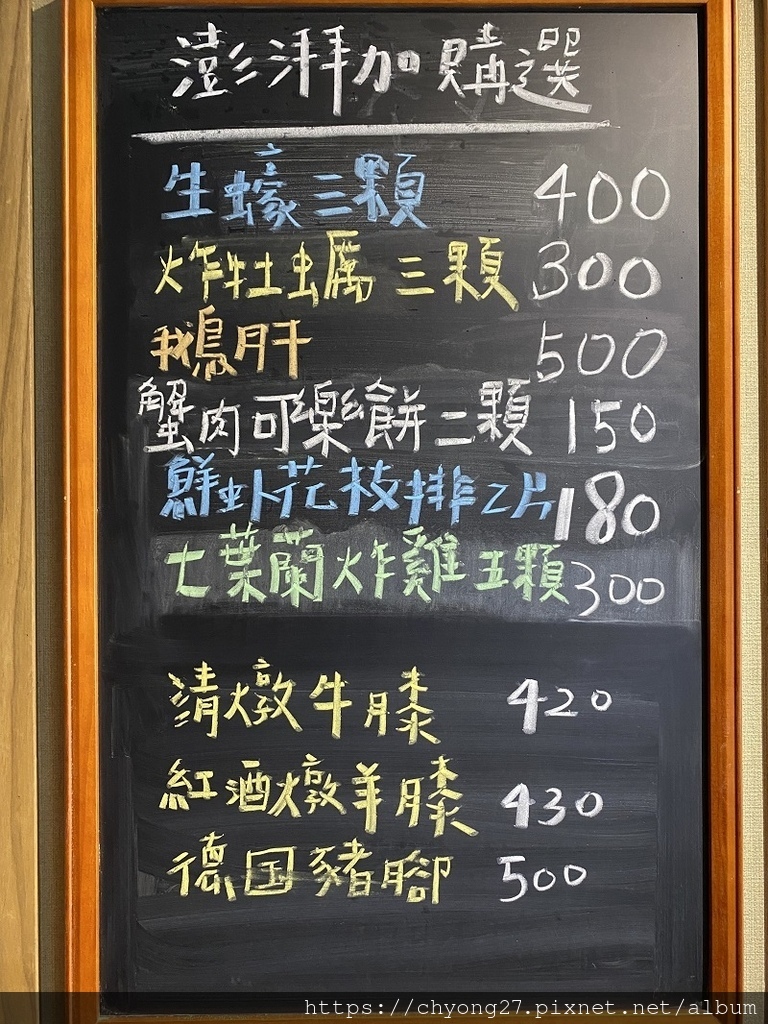 澎湃加購選
生蠔三顆 400
炸牡蠣三顆 300
鵝肝 500
蟹肉可樂餅二顆 150
鮮虾花枝排2片 180
七葉蘭炸雞五顆 300
清燉牛膝 420
紅酒燉羊膝 430
德国豬腳 500
https://chyong27.pixnet.net/album